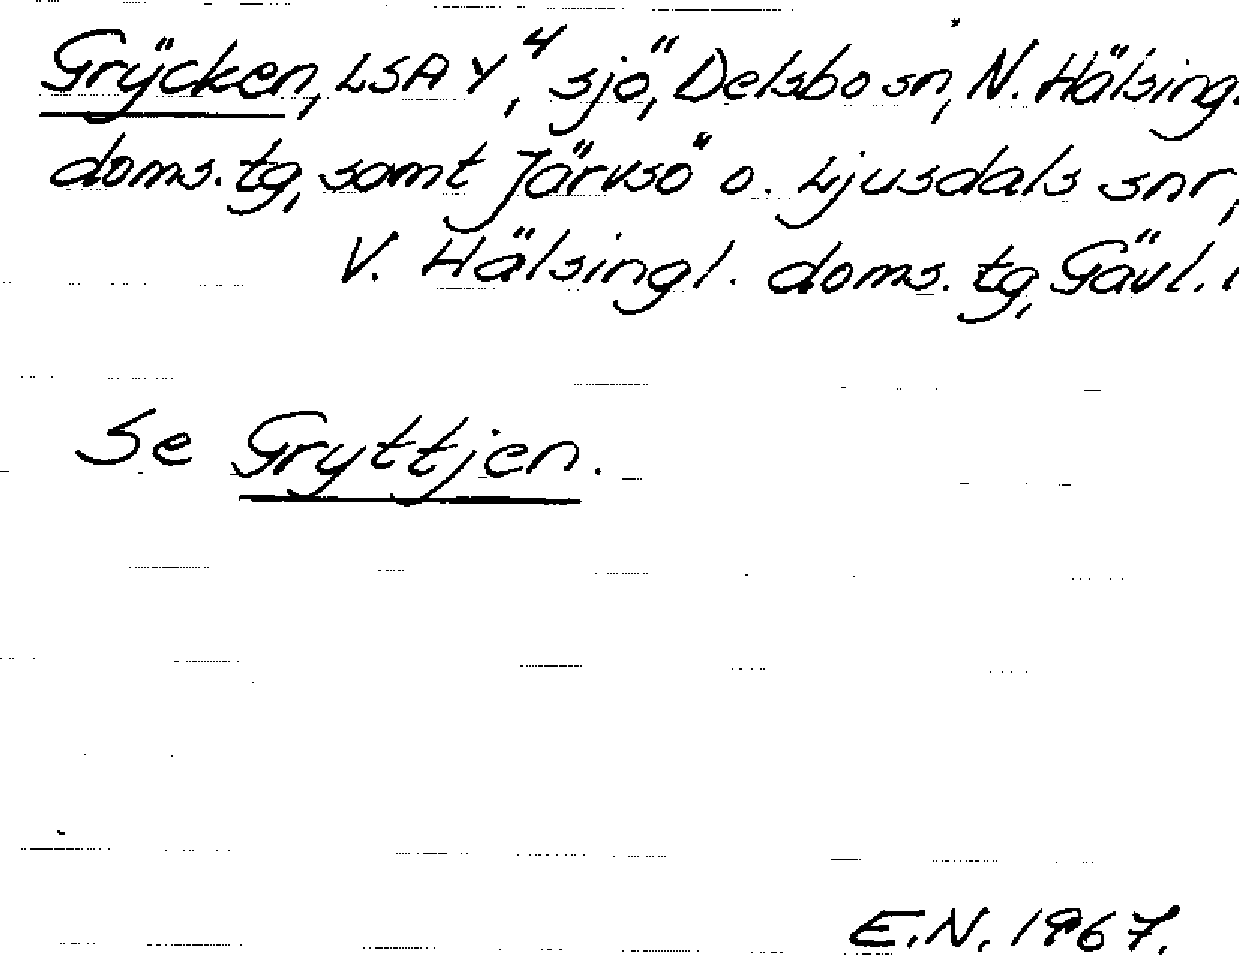 Grÿcken, LSA Y⁴, sjö, Delsbo sn, N. Hälsingl.
doms. tg, samt Järvsö o. Ljusdals snr,
V. Hälsingl. doms. tg, Gävl. l
Se Gryttjen.
E.N. 1967.